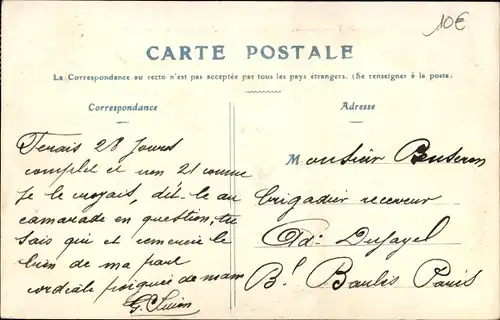 10€
CARTE POSTALE
La Correspondance au recto n'est pas acceptée par tous les pays étrangers. (Se renseigner à la poste.)
Correspondance
Adresse
28 Jours
complet et non 21 comme
je le croyais, dit-le au
camarade en question, tu
sais qui et remercie le
bien de ma part
cordiale poignée de main
G.
Monsieur
brigadier receveur
Dufayel
Bd Paris